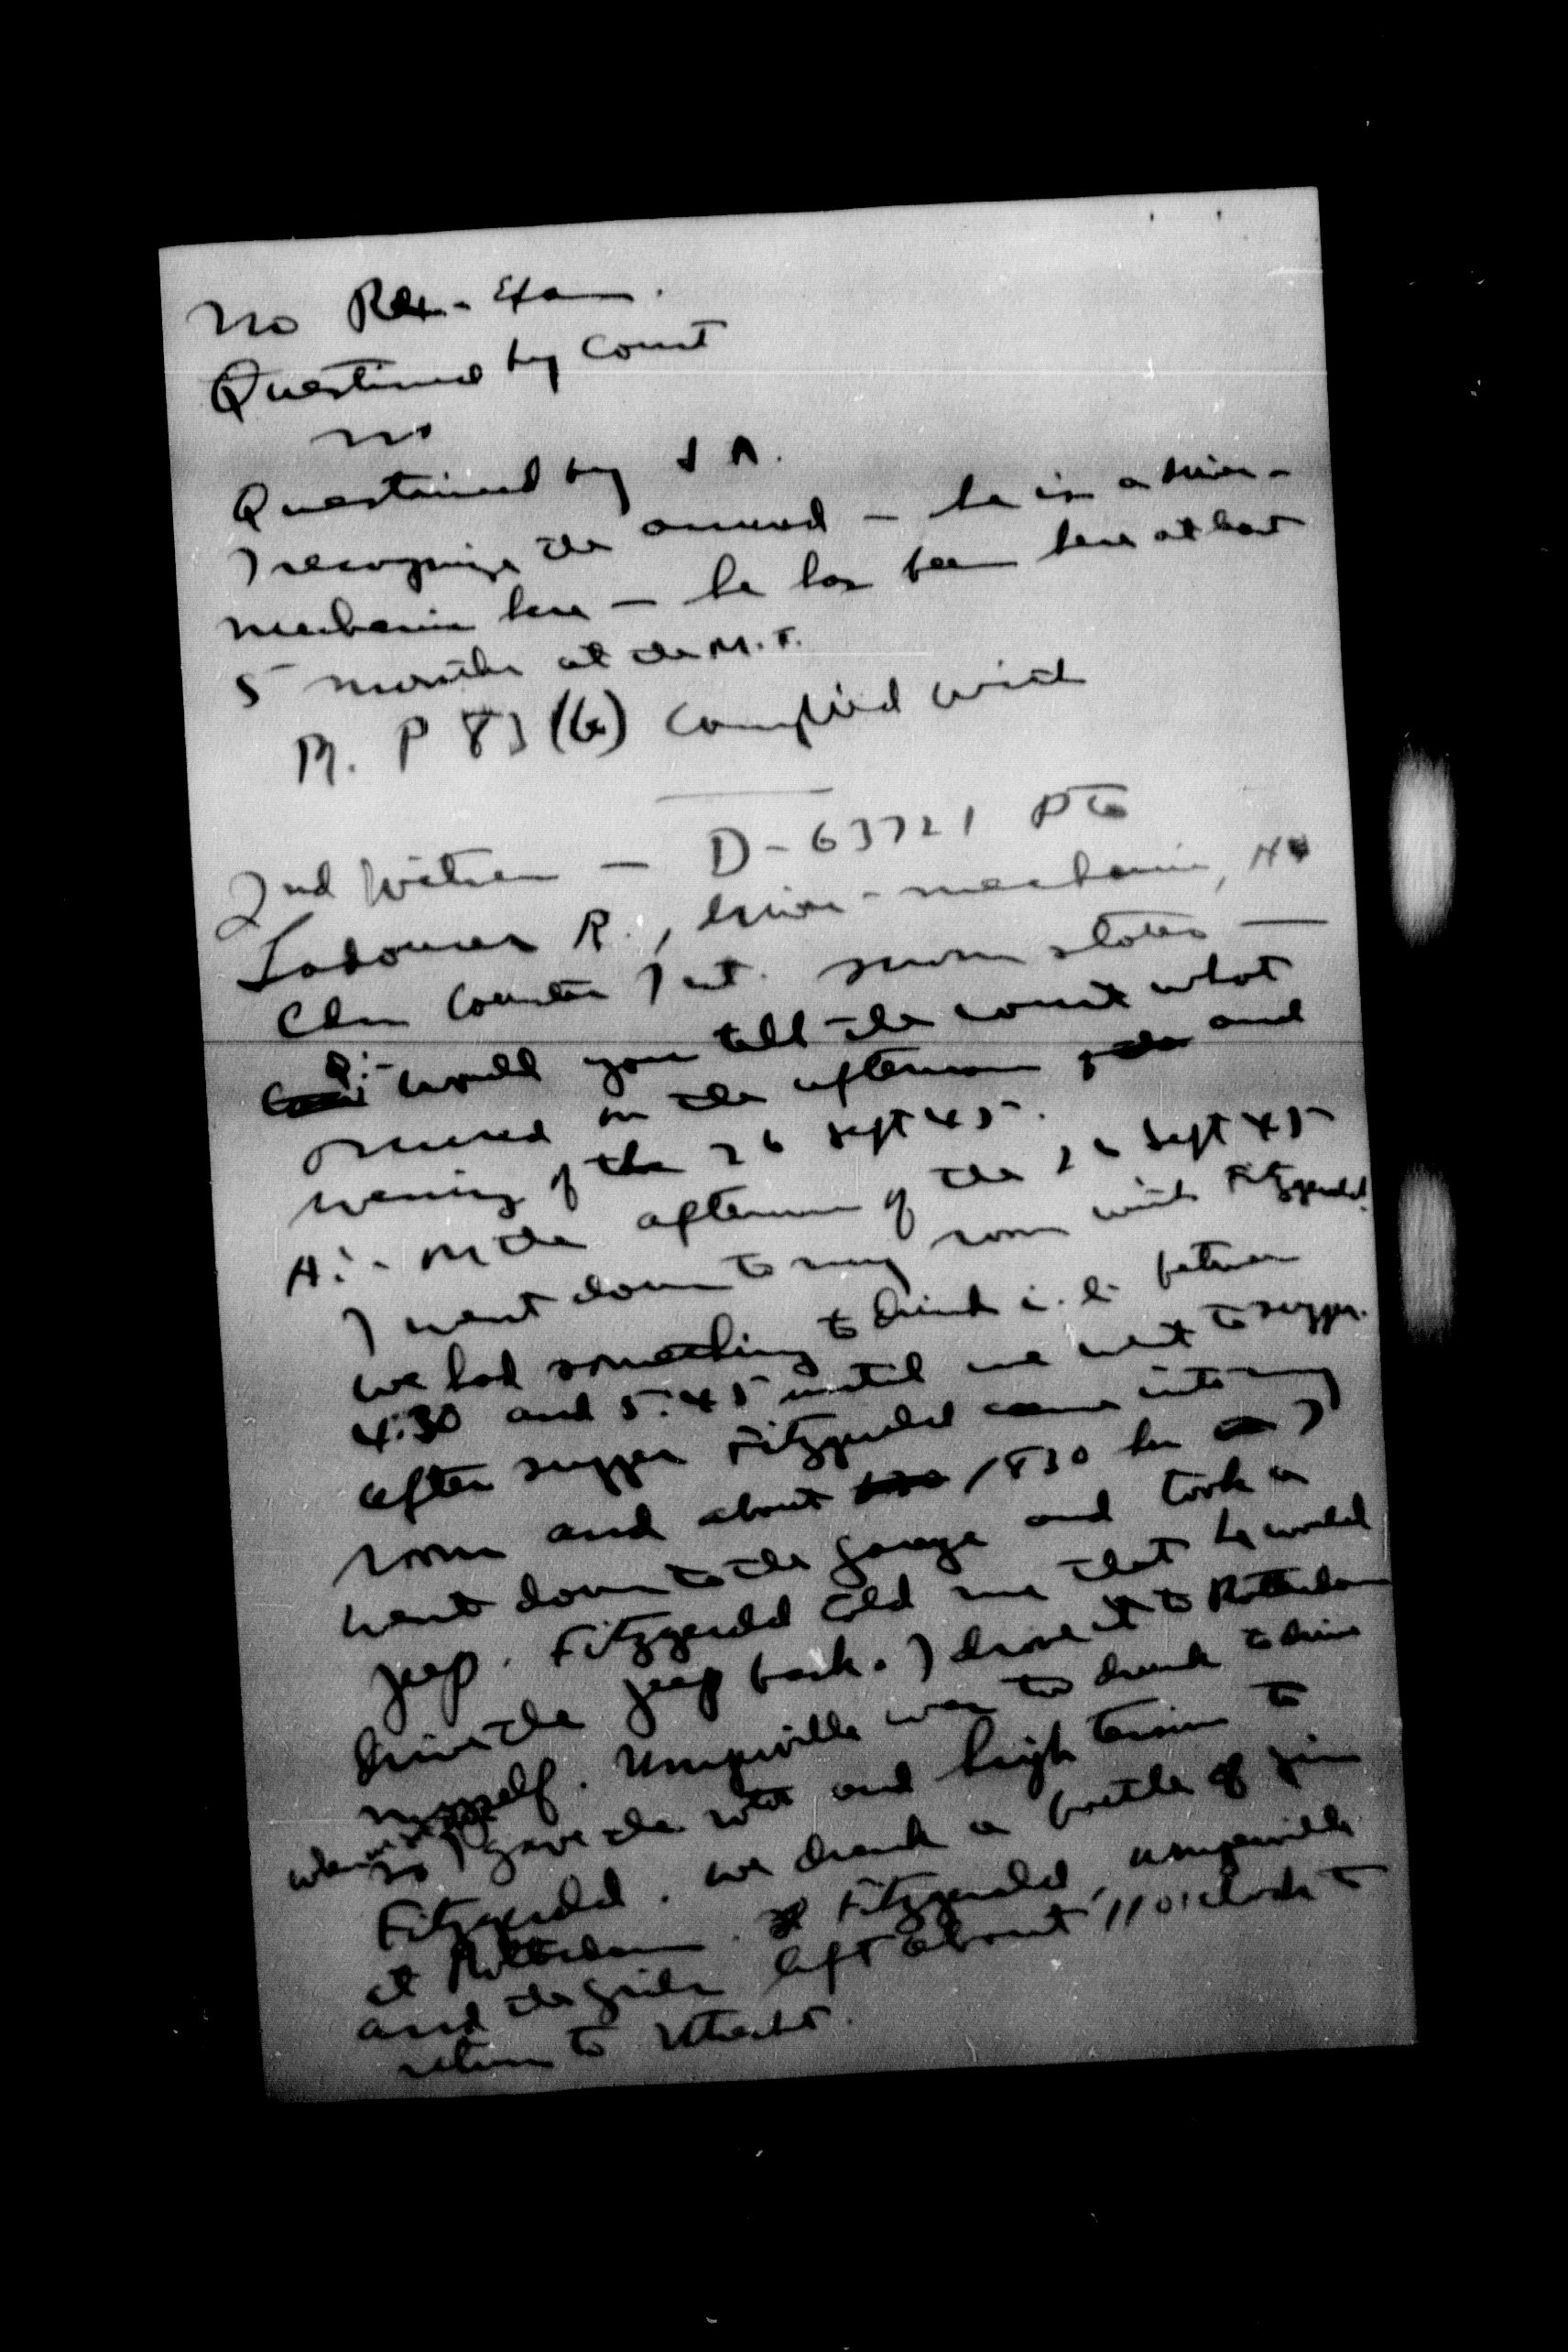 No Rex-Exam.
Questioned by Court
No
Questioned by J A.
I recognize the accused – he is a driver-
mechanic here – he has been here at least
5 months at the M.T.
R. P 83 (B) complied with
2nd Witness – D-63721 Pte
Ladouceur R., driver-mechanic, HQ
Cdn Counter Int. sworn states –
Q:- Would you tell the court what
occurred on the afternoon and
evening of the 26 Sept 45.
A:- On the afternoon of the 26 Sept 45
I went down to my room with Fitzgerald.
We had something to drink i.e. between
4:30 and 5:45 until we went to supper.
After supper Fitzgerald came into my
room and about 1830 hrs I
went down to the garage and took a
jeep. Fitzgerald told me that he would
drive the jeep back. I drove it to Rotterdam
myself. Umperville was too drunk to drive
so I gave the rotor and high tension to
Fitzgerald. We drank a bottle of gin
at Rotterdam. Fitzgerald, Umperville
and the girls left about 11 o'clock to
return to Utrecht.